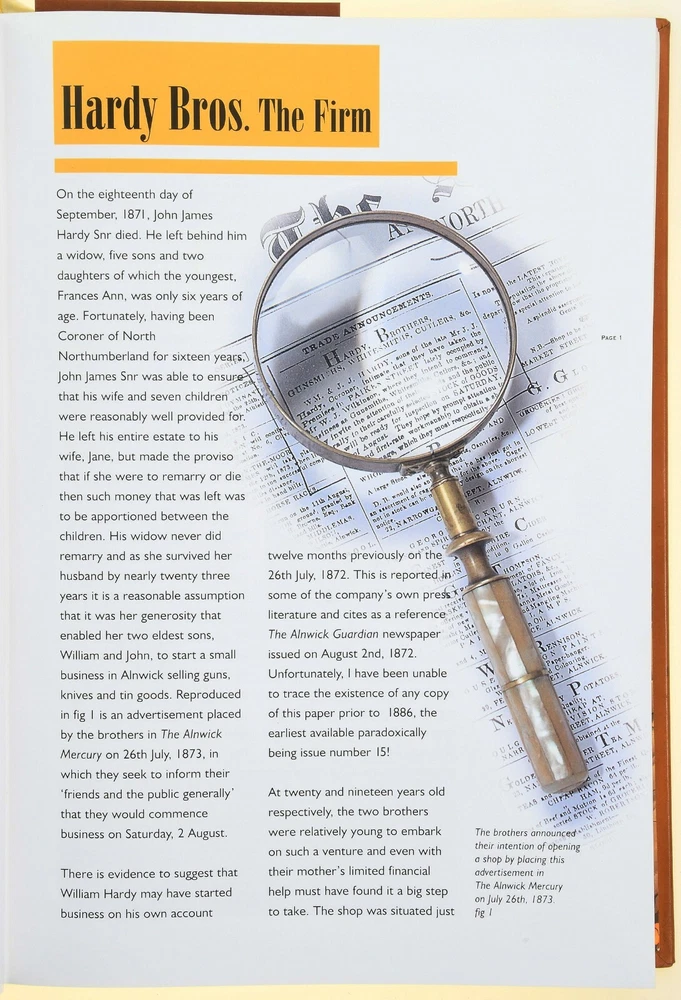 Hardy Bros. The Firm
On the eighteenth day of
September, 1871, John James
Hardy Snr died. He left behind him
a widow, five sons and two
daughters of which the youngest,
Frances Ann, was only six years of
age. Fortunately, having been
Coroner of North
Northumberland for sixteen years,
John James Snr was able to ensure
that his wife and seven children
were reasonably well provided for.
He left his entire estate to his
wife, Jane, but made the proviso
that if she were to remarry or die
then such money that was left was
to be apportioned between the
children. His widow never did
remarry and as she survived her
husband by nearly twenty three
years it is a reasonable assumption
that it was her generosity that
enabled her two eldest sons,
William and John, to start a small
business in Alnwick selling guns,
knives and tin goods. Reproduced
in fig 1 is an advertisement placed
by the brothers in The Alnwick
Mercury on 26th July, 1873, in
which they seek to inform their
'friends and the public generally'
that they would commence
business on Saturday, 2 August.
There is evidence to suggest that
William Hardy may have started
business on his own account
twelve months previously on the
26th July, 1872. This is reported in
some of the company's own press
literature and cites as a reference
The Alnwick Guardian newspaper
issued on August 2nd, 1872.
Unfortunately, I have been unable
to trace the existence of any copy
of this paper prior to 1886, the
earliest available paradoxically
being issue number 15!
At twenty and nineteen years old
respectively, the two brothers
were relatively young to embark
on such a venture and even with
their mother's limited financial
help must have found it a big step
to take. The shop was situated just
The
TRADE ANNOUNCEMENTS.
HARDY BROTHERS,
GUNSMITHS, WHITESMITHS, CUTLERS, &c.
PAGE 1
The brothers announced
their intention of opening
a shop by placing this
advertisement in
The Alnwick Mercury
on July 26th, 1873.
fig 1